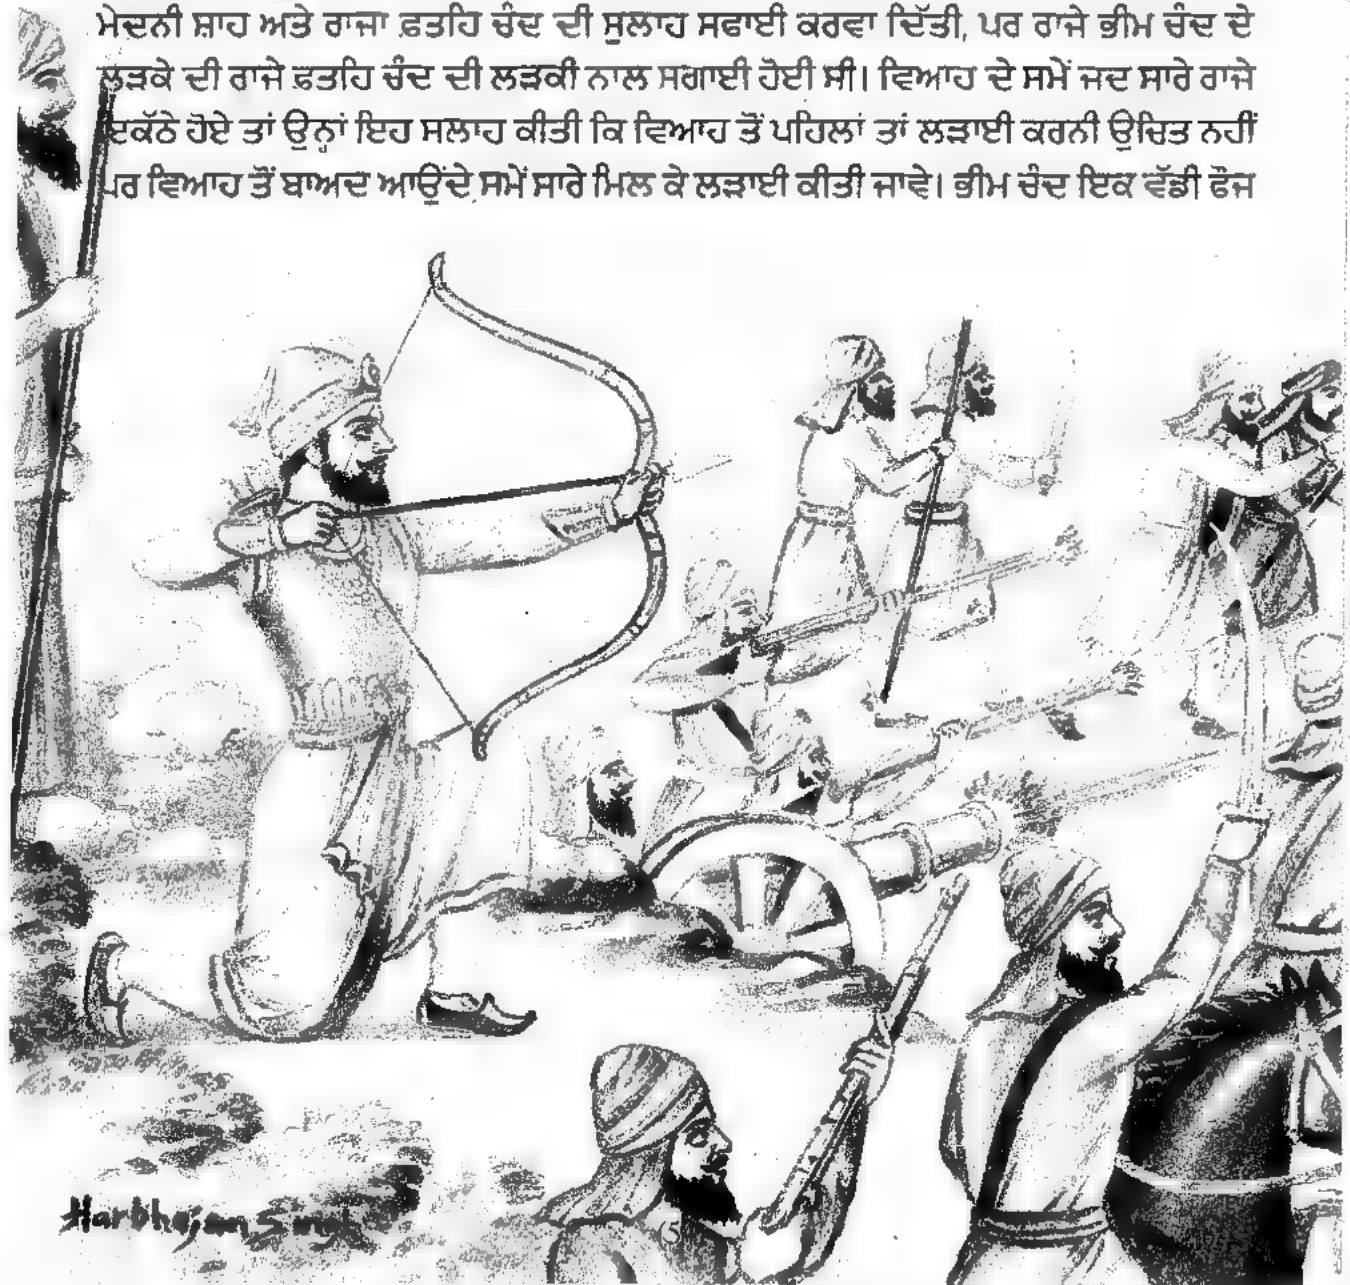 ਮੇਦਨੀ ਸ਼ਾਹ ਅਤੇ ਰਾਜਾ ਫ਼ਤਹਿ ਚੰਦ ਦੀ ਸੁਲਾਹ ਸਫਾਈ ਕਰਵਾ ਦਿੱਤੀ, ਪਰ ਰਾਜੇ ਭੀਮ ਚੰਦ ਦੇ
ਲੜਕੇ ਦੀ ਰਾਜੇ ਫ਼ਤਹਿ ਚੰਦ ਦੀ ਲੜਕੀ ਨਾਲ ਸਗਾਈ ਹੋਈ ਸੀ। ਵਿਆਹ ਦੇ ਸਮੇਂ ਜਦ ਸਾਰੇ ਰਾਜੇ
ਇਕੱਠੇ ਹੋਏ ਤਾਂ ਉਨ੍ਹਾਂ ਇਹ ਸਲਾਹ ਕੀਤੀ ਕਿ ਵਿਆਹ ਤੋਂ ਪਹਿਲਾਂ ਤਾਂ ਲੜਾਈ ਕਰਨੀ ਉਚਿਤ ਨਹੀਂ
ਪਰ ਵਿਆਹ ਤੋਂ ਬਾਅਦ ਆਉਂਦੇ ਸਮੇਂ ਸਾਰੇ ਮਿਲ ਕੇ ਲੜਾਈ ਕੀਤੀ ਜਾਵੇ। ਭੀਮ ਚੰਦ ਇਕ ਵੱਡੀ ਫੌਜ
Harbhajan Singh